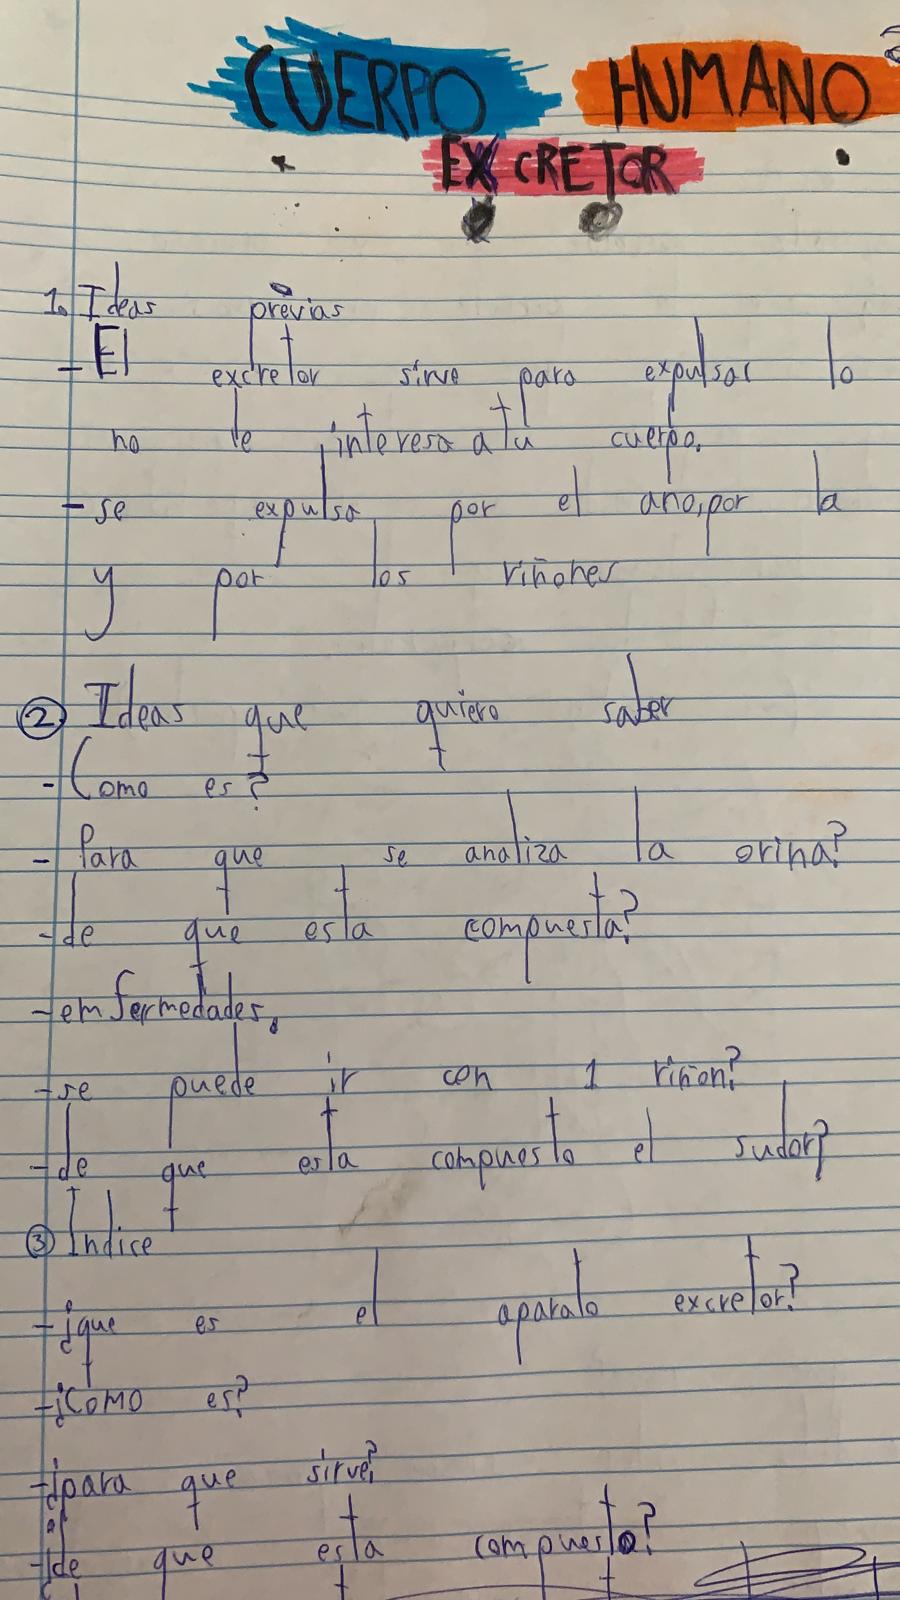 CUERPO HUMANO
EXCRETOR
1. Ideas previas
- El excretor sirve para expulsar lo
no te interesa a tu cuerpo.
- se expulsa por el ano, por la
y por los riñones
2 Ideas que quiero saber
- Como es?
- Para que se analiza la orina?
- de que esta compuesta?
- emfermedades.
- se puede ir con 1 riñon?
- de que esta compuesto el sudor?
3 Indice
- ¿que es el aparato excretor?
- ¿Como es?
- ¿para que sirve?
- ¿de que esta compuesto?